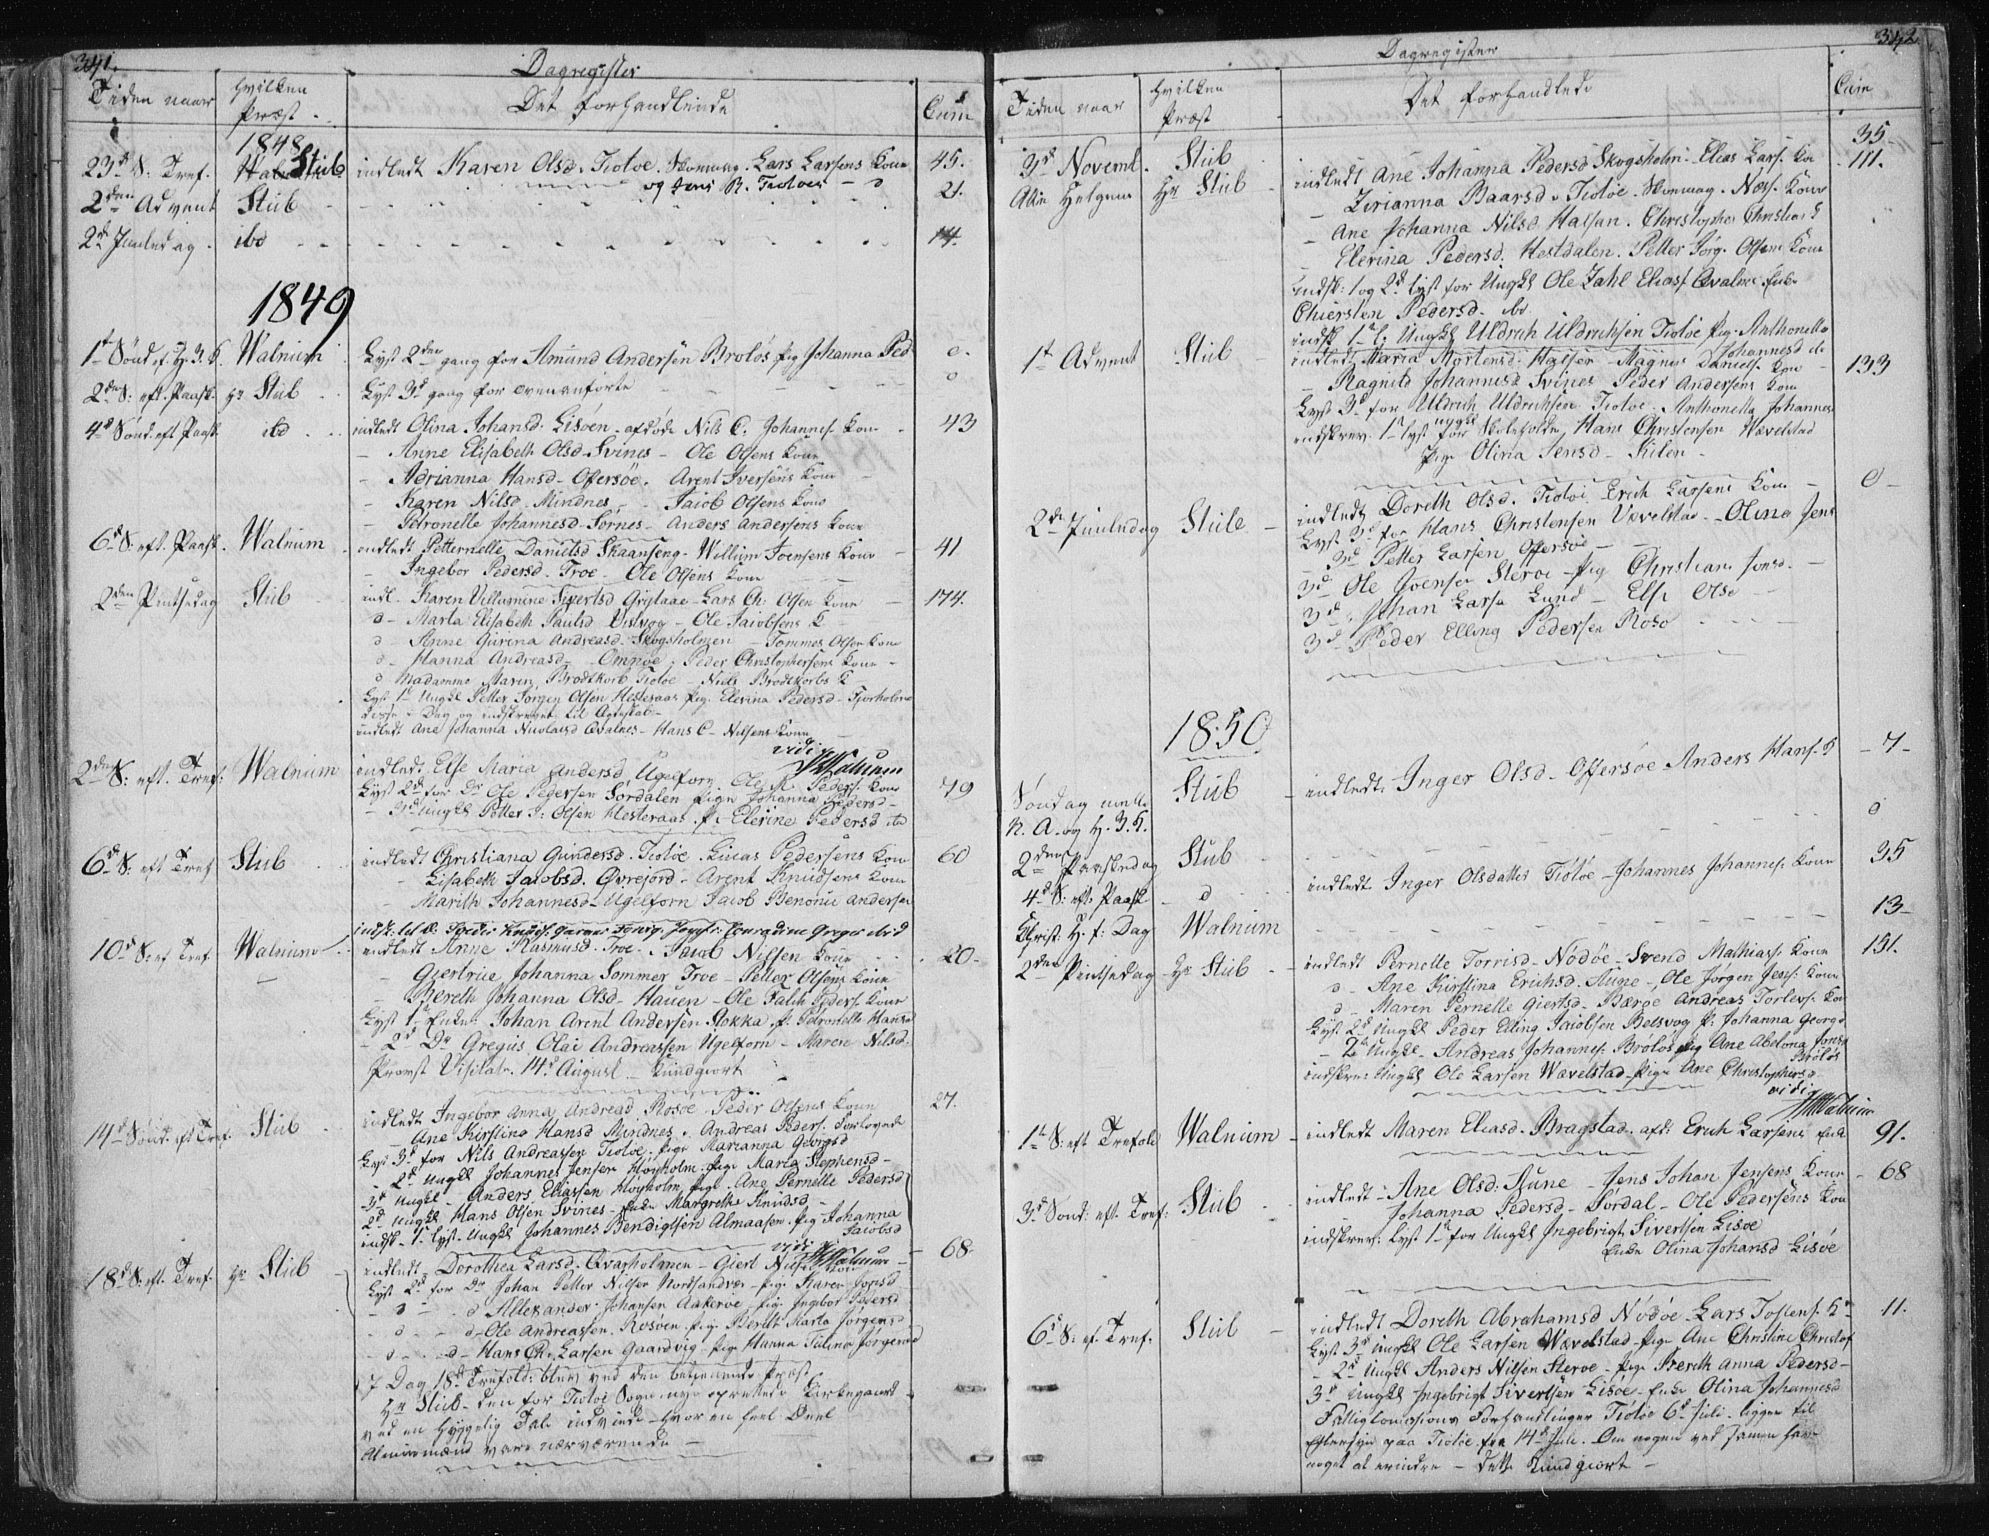 341.
Dagregister
Tiden naar
Hvilken Præst
Det forhandlende
Com
1848
23d S: Tref. Stub indledt Karen Olsd. Tiötöe. Lars Larsens Kone 45.
og Jens R. Tiötöes - d
2den Advent Stub 21.
2d Juuledag ibd 14.
1849
1t Sönd. e. H. 3. K. Walnum Lyst 2den gang for Amund Andersen Brolös Pig Johanna Ped 0.
2den S: eft. Paask. Hr Stub Lyst 3d gang for ovenanförte 0
4d Sönd. eft Paask ibd indledt Olina Johansd. Lisöen - afdöde Nils C. Johannes. Kone 43
- Anne Elisabeth Olsd. Svines - Ole Olsens Kone
- Adrianna Hansd - Offersöe. Arent Iversens Kone
- Karen Nilsd. Mindnes - Jacob Olsens Kone
- Petronelle Johannesd. Sörnes - Anders Andersens Kone
6d S: eft. Paask. Walnum indledt Petternelle Danielsd Skaanseng - Willum Joensens Kone 41
- Ingebor Pedersd. Troe - Ole Olsens Kone
2den Pintsedag Stub indl. Karen Villumine Sivertsd Grytaae - Lars Ch: Olsen Kone 174.
d - Marta Elisabeth Paulsd Vistvog - Ole Jacobsens K
d - Anne Gurina Andreasd - Skogsholmen - Tommes Olsen Kone
d - Hanna Andreasd - Omnöe - Peder Christophersens Kone
d Madamme Maren Brodtkorb Tiötöe - Niels Brodtkorbs K
Lyst 1t Ungkl Petter Jörgen Olsen Hesteraas Pig. Elerina Pedersd - Tjorholme
Dag og indskrevet til Ægteskab
indledt Ane Johanna Nicolaisd Qvalnes - Hans C - Nilsens Kone
vidi Walnum
2den S: eft. Tref: Walnum indledt Else Maria Andersd Ugelforn Ole M. Peders. Kone 79
Lyst 2d for Do Ole Pedersen Sördalen Pigen Johanna Pedersd -
- 3d Ungkl Petter J: Olsen Hesteraas P: Elerine Pedersd do
6d S: eft Tref Stub indledt Christiana Gundersd. Tiötöe. Lucas Pedersens Kone 60
Lisabeth Jacobsd. Övrejord - Arent Knudsens Kone
Marith Johannesd - Ugelforn Jacob Benonie Andersen
10d S: ef Tref Walnum indledt Anne Rasmusd. Troe - Jacob Nilsen Kone 20.
Giertrue Johanna Sommer Troe - Petter Olsens Kone
Bereth Johanna Olsd - Hauen - Ole Falch Peders. Kone
Lyst 1t Enkem. Johan Arent Andersen Stokka P. Petronelle Hansd
- 2d Do Gregus Olai Andreassen Ugelforn - Maren Nilsd.
Provst Visitats. 14d August - Kundgiort
14d Sönd. eft Tref. Stub indledt Ingebor Anna Andreasd Rosöe - Peder Olsens Kone 27.
- Ane Kirstina Hansd Mindnes. Andreas Peders. Forlovede
Lyst 3d for Nils Andreassen Tiötöe, Pige Marianna Georgsd
- 2d Ungkl Johannes Jensen Höyholm. Pige Maria Stephensd -
3d Ungkl - Anders Eliassen Höyholm, Pige. Ane Pernelle Pedersd
2d Ungkl Hans Olsen Svines - Enke Margrethe Knudsd -
indsk - 1t Lyst - Ungkl Johannes Bendigtsen Almaasen. Pig Johanna Jacobsd
vidi Walnum
18d S: eft. Tref. Hr Stub indledt. Dorothea Larsd. Qvarholmen - Giert Nilsens 68.
Lyst 2d for Do Johan Petter Nilsen Nordsandvær - Pige Karen Jonsd
- d - d Allexander Johansen Aakeröe - Pig. Ingebor Pedersd
- d - d - Ole Andreassen. Rosöen. Pig. Bereth Marta Jörgensd
- d - d - Hans Ch. Larsen Gaardvig - Pige Hanna Tulina Jörgensd
7 Dag 18d Trefold: blev ved den betienende Præst
Hr Stub - den for Tiötöe Sogn nye oprettede Kirkegaard
ved en Hyggelig Tale indviede - hvor en heel Deel
Almuemænd vare nærværende -
342
Dagregister
Tiden naar
Hvilken Præst
Det forhandlede
Com
3d Novemb. Stub 35.
Alle Helgene Hr Stub indledt Ane Johanna Pedersd Skogsholm - Elias Lars. Ko 111.
- Zirianna Baarsd - Tiötöe.
- Ane Johanna Nilsd Halsan. Christopher Christians
- Elerina Pedersd. Hestdalen. Petter Jörg. Olsens Kone
indsk: 1 og 2d Lyst for Ungkl Ole Zahl Elias. Qvalnes Enke
Chiersten Pedersd. ibd
indsk 1t L. Ungkl Uldrich Uldrichsen Tiötöe Pig. Anthonetta Johannesd do
1t Advent Stub indledt Maria Mortensd. - Magnus Daniels. Kone 133
- Ragnild Johannesd Svines Peder Andersens Kone
Lyst 3d for Uldrich Uldrichsen Tiötöe - Anthonetta Johannes
indskrev. 1t Lyst for Ungkl Skoleholder Hans Christensen Vævelstad
Pige Olina Jensd - Kilen -
2den Juuledag Stub indledt Doreth Olsd. Tiötöe Erich Larsens Kone 0
Lyst 3d for Hans Christensen Vævelstad - Olina Jens
- 3d Petter Larsen Offersöe
3d Ole Joensen Steroe Pig Christiane Jonsd.
3d. Johan Larsen Lund - Else Olsd
3d Peder Elling Pedersen Rosö
1850
Söndag mell. N. A. og H. 3. K. Stub indledt. Inger Olsd - Offersöe Anders Hans. K 7
2den Paaskedag Stub 0
4d S: eft. Paask d indledt Inger Olsdatter Tiötöe - Johannes Johannes. Kone 35
Christ. H. f. Dag Walnum 13
2den Pintsedag Hr Stub indledt Pernelle Torrisd - Nödöe - Svend Mathias. Kone 151.
d - Ane Kirstina Erichsd - Aune - Ole Jörgen Jens. Kone
d - Maren Pernelle Giertsd - Bærøe Andreas Torlevs. Kone
Lyst 2d Ungkl Peder Elling Jacobsen Belsvog P. Johanna Georgsd
- 2d Ungkl - Andreas Johannes. Brolös Pig Ane Abelona Jonsd Brolös
indskrev. Ungkl Ole Larsen Wævelstad - Pige Ane Christophersd.
vidi Walnum
1t S: eft Trefold Walnum indledt Maren Eliasd. Bragstad. afd: Erich Larsens Enke 91.
3d Sönd: eft. Tref: Stub indledt - Ane Olsd: Aune - Jens Johan Jensens Kone 68
Johanna Pedersd - Sördal - Ole Pedersens Kone
indskrev: Lyst 1t for Ungkl Ingebrigt Sivertsen Lisöe
Enke Olina Johansd Lisöe
6d S: ef. Tref. Stub indledt Doreth Abrahamsd Nödöe - Lars Tostens. Ko 11.
Lyst 3d Ungkl Ole Larsen Wævelstad - Pige Ane Christine Christof
- 2d Ungkl Anders Nilsen Steroe - Pige Bereth Anna Pedersd -
3d Ungkl Ingebrigt Sivertsen - Lisöe - Enke Olina Johannesd
Fattigkomissions Forhandlinger Tiötöe 6d Juli. ligger til
Eftersyn paa Tiötöe fra 14d Juli. Om nogen ved samme have
noget at erindre - dette Kundgiort -